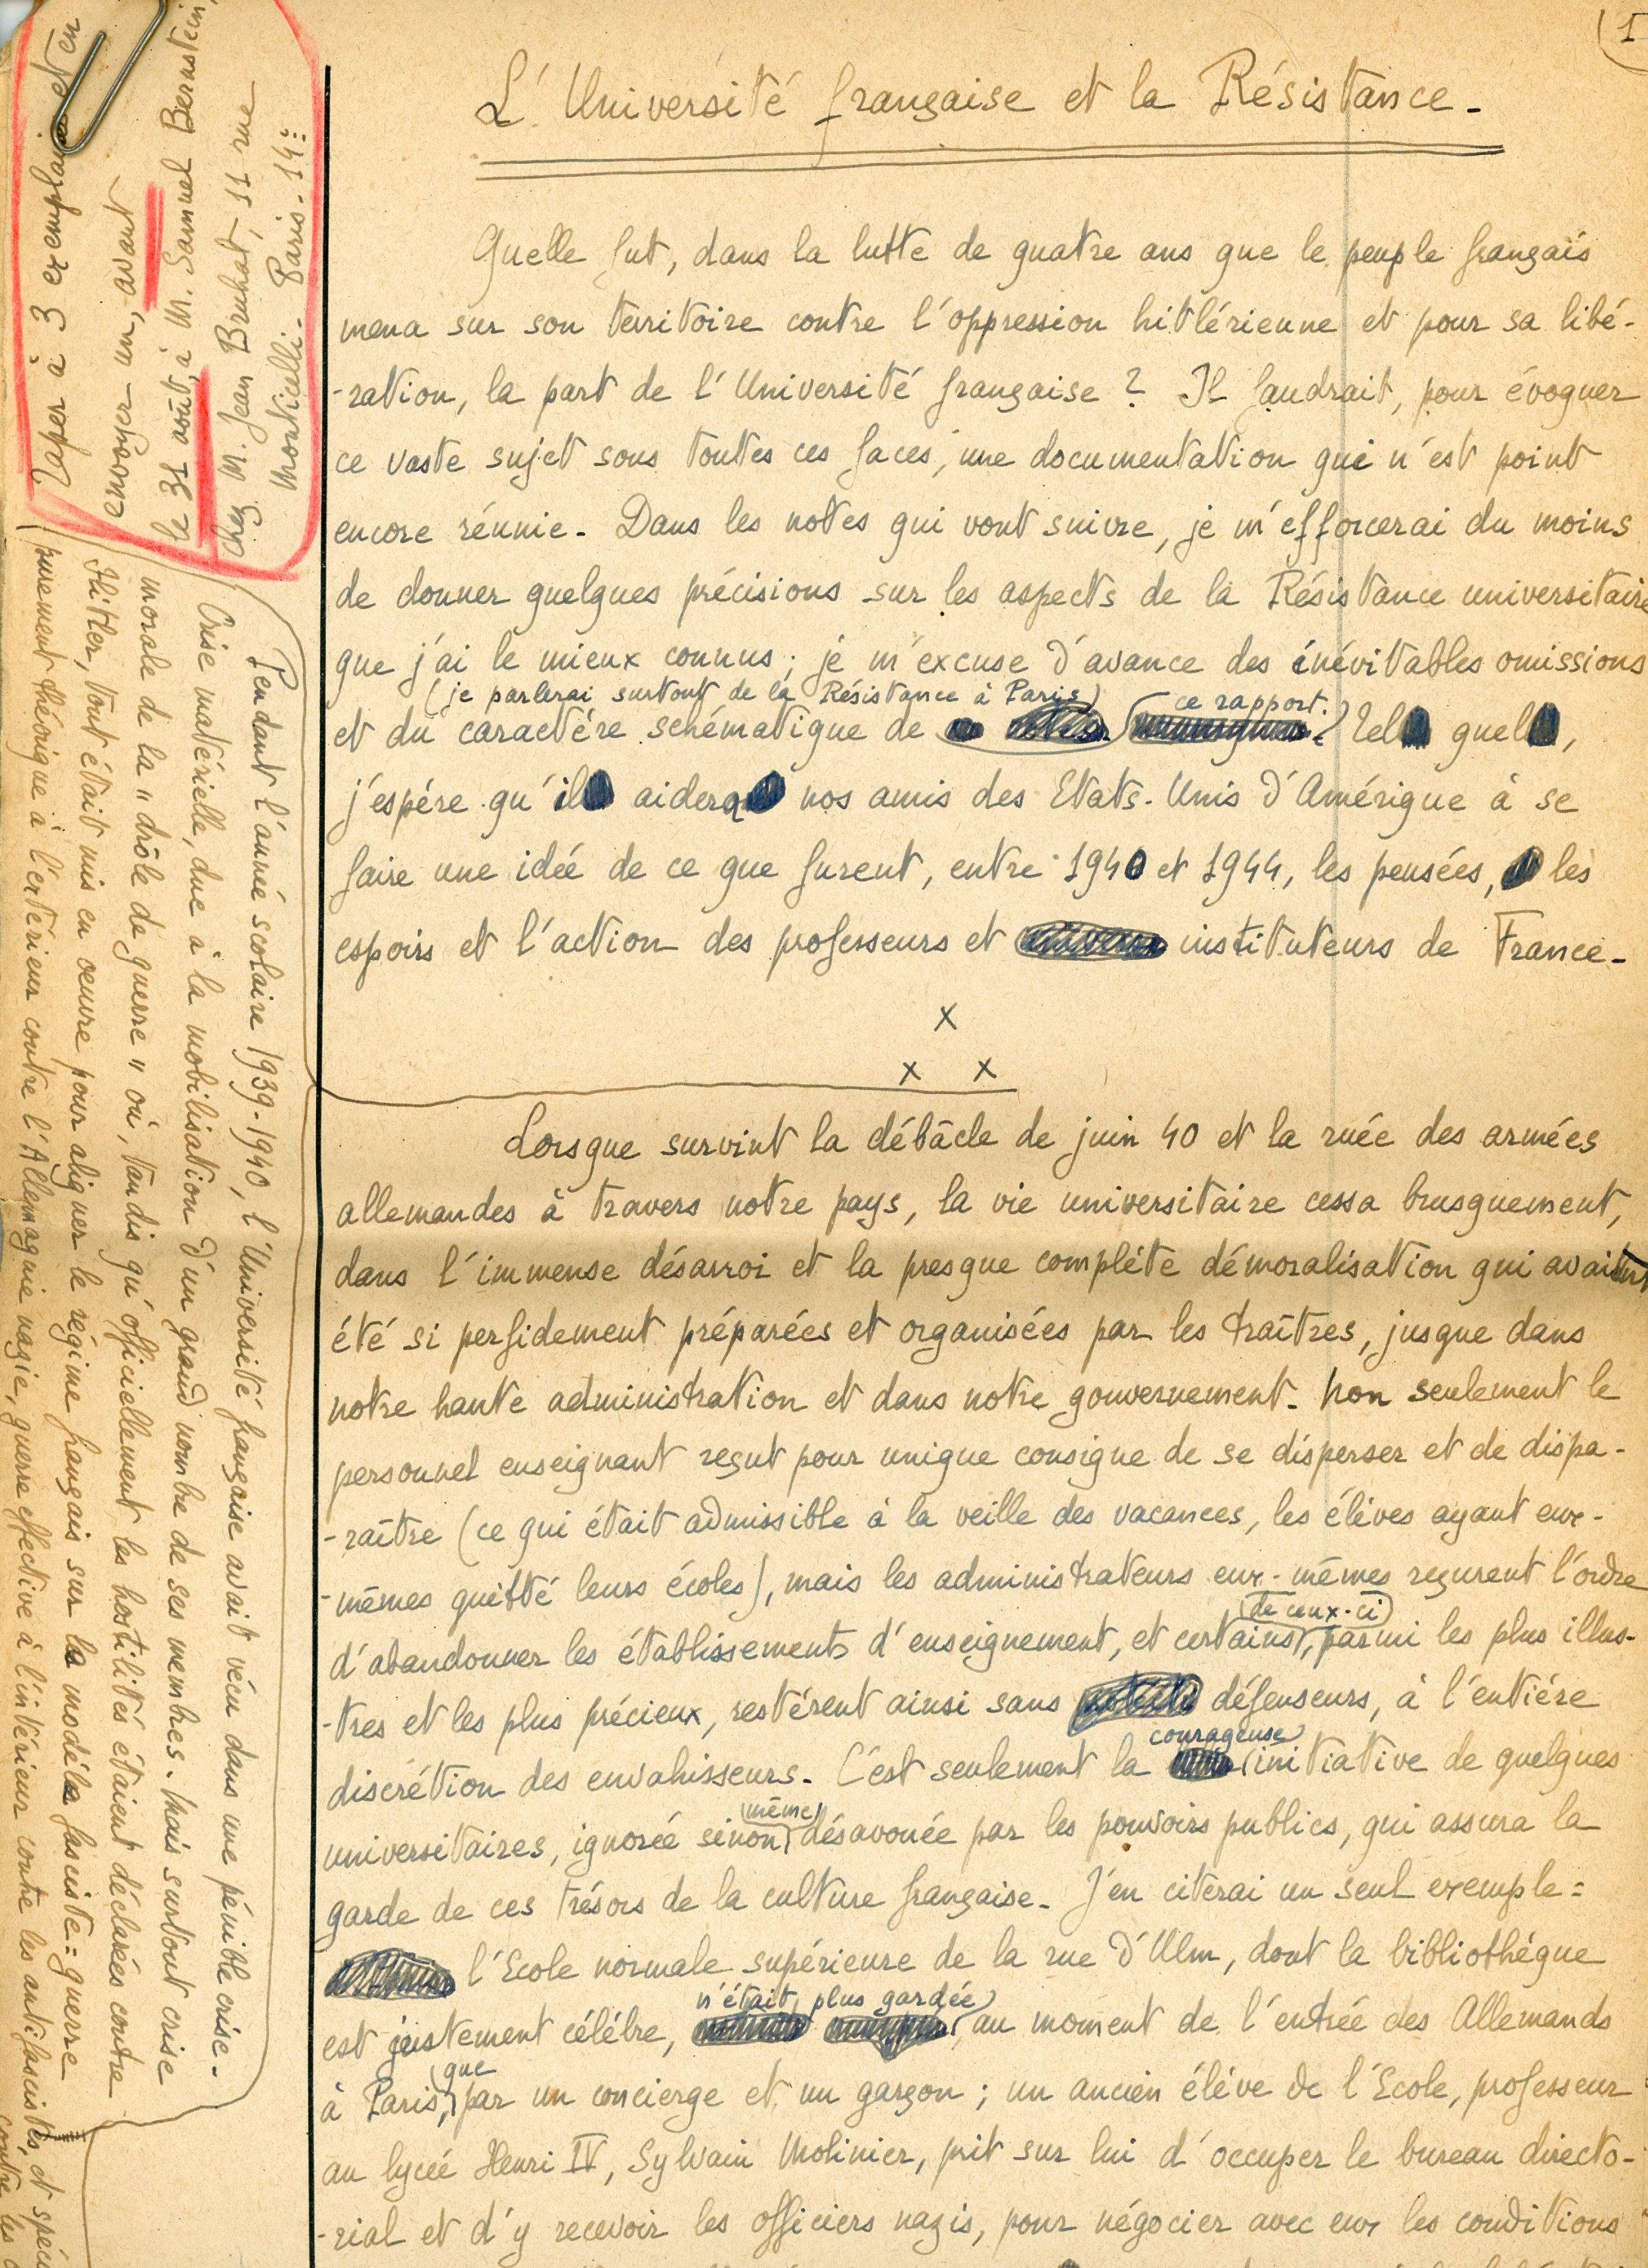 (1
L'Université française et la Résistance.
Quelle fut, dans la lutte de quatre ans que le peuple français
mena sur son territoire contre l'oppression hitlérienne et pour sa libé-
-ration, la part de l'Université française ? Il faudrait, pour évoquer
ce vaste sujet sous toutes ces faces, une documentation qui n'est point
encore réunie. Dans les notes qui vont suivre, je m'efforcerai du moins
de donner quelques précisions sur les aspects de la Résistance universitaire
que j'ai le mieux connus ; je m'excuse d'avance des inévitables omissions
(je parlerai surtout de la Résistance à Paris) ce rapport.
et du caractère schématique de Tel quel,
j'espère qu'il aidera nos amis des Etats-Unis d'Amérique à se
faire une idée de ce que furent, entre 1940 et 1944, les pensées, les
espoirs et l'action des professeurs et instituteurs de France.
x
x x
Lorsque survint la débâcle de juin 40 et la ruée des armées
allemandes à travers notre pays, la vie universitaire cessa brusquement,
dans l'immense désarroi et la presque complète démoralisation qui avaient
été si perfidement préparées et organisées par les traîtres, jusque dans
notre haute administration et dans notre gouvernement. Non seulement le
personnel enseignant reçut pour unique consigne de se disperser et de dispa-
-raître (ce qui était admissible à la veille des vacances, les élèves ayant eux-
-mêmes quitté leurs écoles), mais les administrateurs eux-mêmes reçurent l'ordre
de ceux-ci
d'abandonner les établissements d'enseignement, et certains, parmi les plus illus-
-tres et les plus précieux, restèrent ainsi sans défenseurs, à l'entière
courageuse
discrétion des envahisseurs. C'est seulement la initiative de quelques
même
universitaires, ignorée sinon désavouée par les pouvoirs publics, qui assura la
garde de ces trésors de la culture française. J'en citerai un seul exemple :
l'Ecole normale supérieure de la rue d'Ulm, dont la bibliothèque
n'était plus gardée
est justement célèbre, au moment de l'entrée des Allemands
que
à Paris, par un concierge et un garçon ; un ancien élève de l'Ecole, professeur
au lycée Henri IV, Sylvain Molinier, prit sur lui d'occuper le bureau directo-
-rial et d'y recevoir les officiers nazis, pour négocier avec eux les conditions
Pendant l'année scolaire 1939-1940, l'Université française avait vécu dans une pénible crise.
Crise matérielle, due à la mobilisation d'un grand nombre de ses membres. Mais surtout crise
morale de la "drôle de guerre" où, tandis qu'officiellement les hostilités étaient déclarées contre
Hitler, tout était mis en oeuvre pour aligner le régime français sur le modèle fasciste : guerre
purement théorique à l'extérieur contre l'Allemagne nazie, guerre effective à l'intérieur contre les antifascistes, et
contre les
Taper à 3 exemplaires et en
envoyer un, avant
le 31 août, à M. Samuel Bernstein
chez M. Jean Bruhat, 11 rue
Monticelli. Paris. 14e